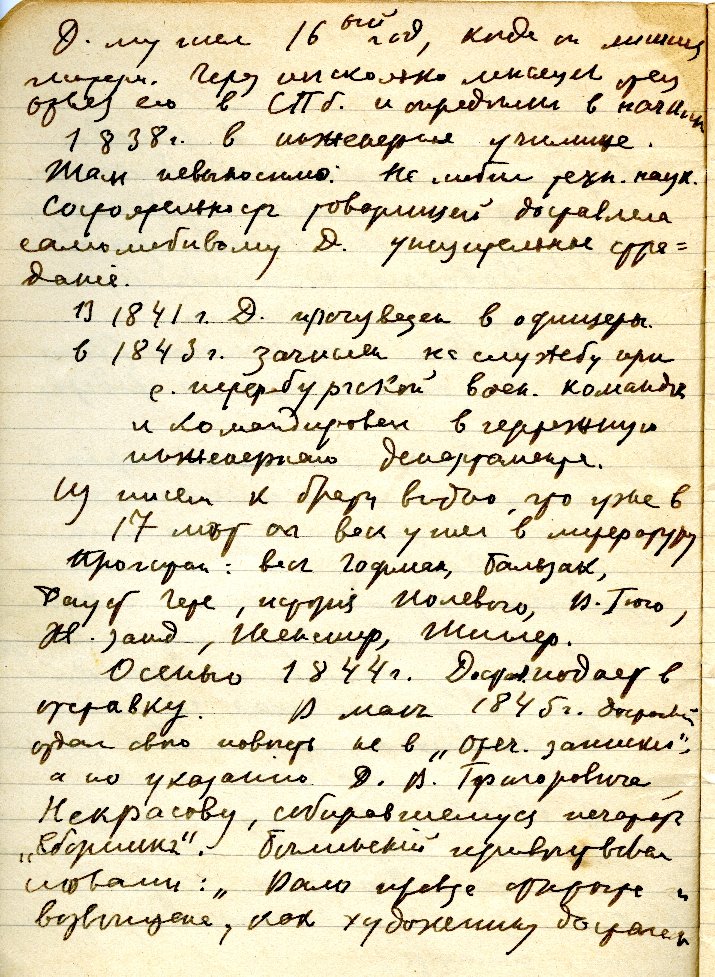 Д. шел 16 ый год, когда он лишился
матери. Через несколько месяцев отец
отвез его в СПб. и определил в начале
1838 г. в инженерное училище.
Там невыносимо. Не любил техн. наук.
Состоятельность товарищей доставляла
самолюбивому Д. унизительные стра=
данiе.
В 1841 г. Д. произведен в офицеры.
в 1843 г. зачислен на службу при
с. петербургской воен. команде
и командирован в чертежную
инженерного департамента.
Из писем к брату видно, что уже в
17 лет он весь ушел в литературу
Прочитан: весь Гофман, Бальзак,
Фауст Гете, история Полевого, В. Гюго,
Ж. Занд, Шекспир, Шиллер.
Осенью 1844 г. Дост. подает в
отставку. В мае 1845 г. Достоевский
отдал свою повесть не в „Отеч. записки",
а по указанiю Д. В. Григоровича
Некрасову, собиравшемуся печатать
„Сборник". Белинскiй приветствовал
словами: „Вам правда открыта и
возвещена, как художнику досталась